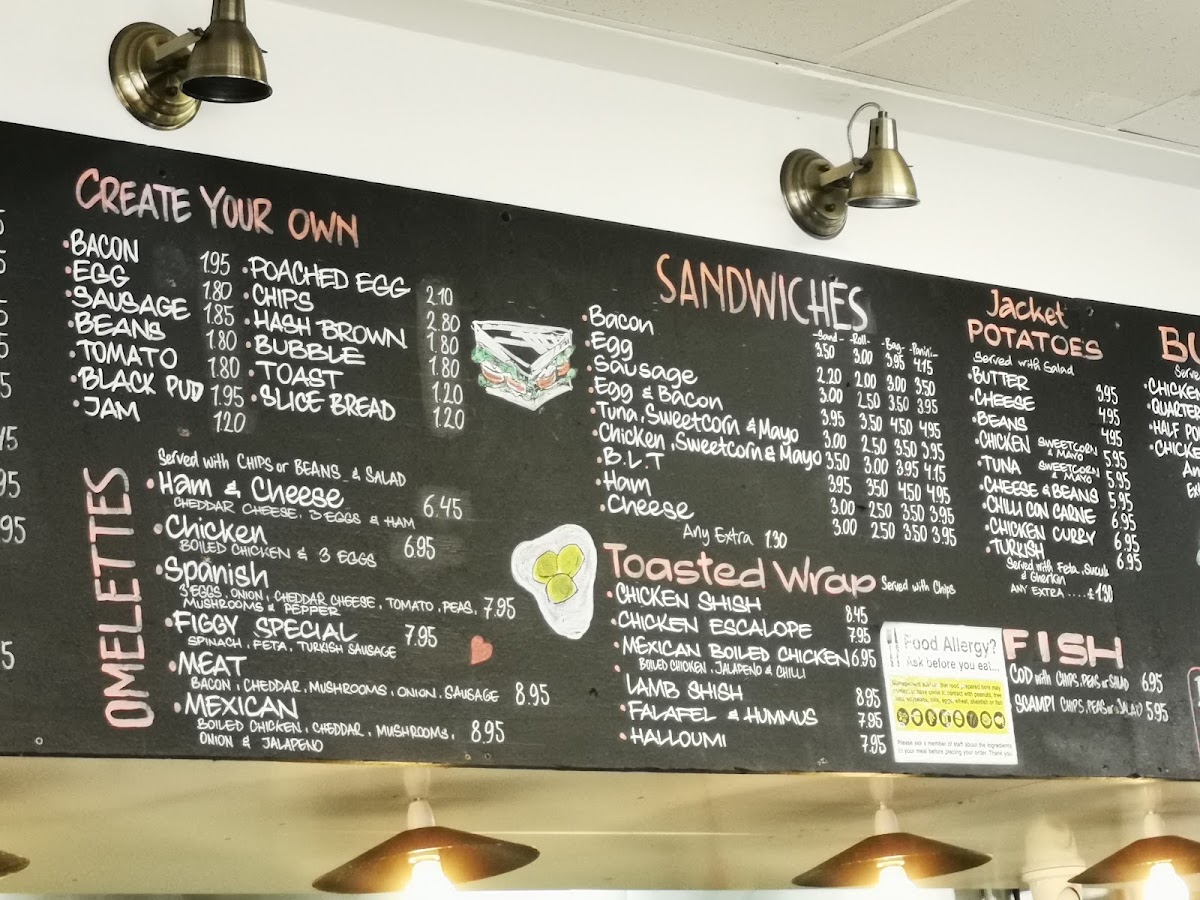 CREATE YOUR OWN
• BACON 1.95
• EGG 1.80
• SAUSAGE 1.85
• BEANS 1.80
• TOMATO 1.80
• BLACK PUD 1.95
• JAM 1.20
• POACHED EGG 2.10
• CHIPS 2.80
• HASH BROWN 1.80
• BUBBLE 1.80
• TOAST 1.20
• SLICE BREAD 1.20
OMELETTES
Served with CHIPS or BEANS & SALAD
• Ham & Cheese 6.45
CHEDDAR CHEESE, 3 EGGS & HAM
• Chicken 6.95
BOILED CHICKEN & 3 EGGS
• Spanish
3 EGGS, ONION, CHEDDAR CHEESE, TOMATO, PEAS, 7.95
MUSHROOMS & PEPPER
• FIGGY SPECIAL 7.95
SPINACH, FETA, TURKISH SAUSAGE
• MEAT
BACON, CHEDDAR, MUSHROOMS, ONION, SAUSAGE 8.95
• MEXICAN
BOILED CHICKEN, CHEDDAR, MUSHROOMS, 8.95
ONION & JALAPENO
SANDWICHES
-Sand- -Roll- -Bag- -Panini-
• Bacon 3.50 3.00 3.95 4.15
• Egg 2.20 2.00 3.00 3.50
• Sausage 3.00 2.50 3.50 3.95
• Egg & Bacon 3.95 3.50 4.50 4.95
• Tuna, Sweetcorn & Mayo 3.00 2.50 3.50 3.95
• Chicken, Sweetcorn & Mayo 3.50 3.00 3.95 4.15
• B.L.T 3.95 3.50 4.50 4.95
• Ham 3.00 2.50 3.50 3.95
• Cheese 3.00 2.50 3.50 3.95
Any Extra 1.30
Toasted Wrap Served with Chips
• CHICKEN SHISH 8.45
• CHICKEN ESCALOPE 7.95
• MEXICAN BOILED CHICKEN 6.95
BOILED CHICKEN, JALAPENO & CHILLI
• LAMB SHISH 8.95
• FALAFEL & HUMMUS 7.95
• HALLOUMI 7.95
Jacket
POTATOES
Served with Salad
• BUTTER 3.95
• CHEESE 4.95
• BEANS 4.95
• CHICKEN SWEETCORN & MAYO 5.95
• TUNA SWEETCORN & MAYO 5.95
• CHEESE & BEANS 5.95
• CHILLI CON CARNE 6.95
• CHICKEN CURRY 6.95
• TURKISH 6.95
Served with Feta, Sucuk
& Gherkin
ANY EXTRA .... £1.30
Food Allergy?
Ask before you eat...
Please ask a member of staff about the ingredients
in your meal before placing your order. Thank you
FISH
COD with CHIPS, PEAS or SALAD 6.95
SCAMPI CHIPS, PEAS or SALAD 5.95
BU
Serve
• CHICKEN
• QUARTER
• HALF PO
• CHICKE